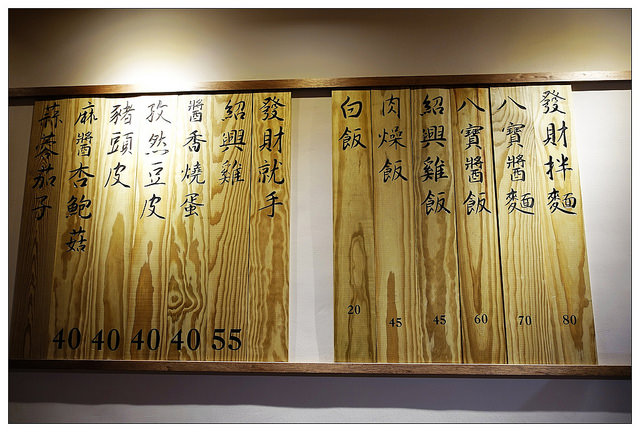 發財拌麵
80
八寶醬麵
70
八寶醬飯
60
紹興雞飯
45
肉燥飯
45
白飯
20
發財就手
紹興雞
55
醬香燒蛋
40
孜然豆皮
40
豬頭皮
40
麻醬杏鮑菇
40
蒜蓉茄子